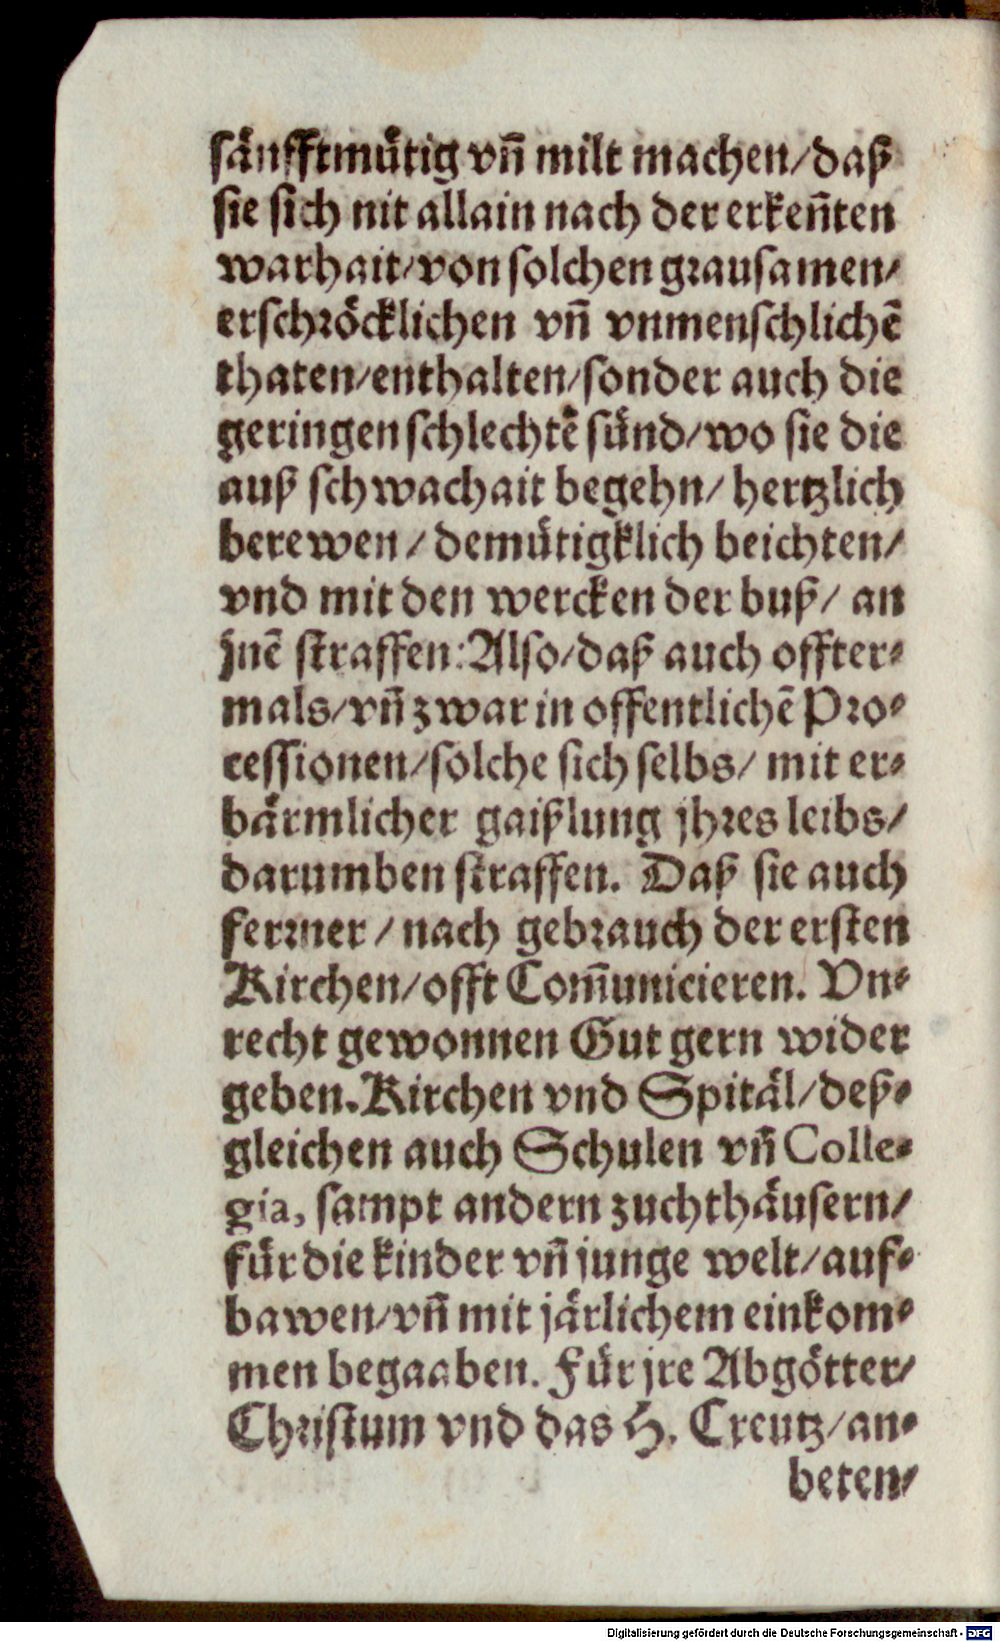 sänfftmütig vñ milt machen/daß
sie sich nit allain nach der erkeñten
warhait/von solchen grausamen/
erschröcklichen vñ vnmenschlichẽ
thaten/enthalten/sonder auch die
geringen schlechtẽ sünd/wo sie die
auß schwachait begehn/ hertzlich
berewen/ demütigklich beichten/
vnd mit den wercken der buß/ an
jnẽ straffen: Also/daß auch offter-
mals/vñ zwar in offentlichẽ Pro-
cessionen/solche sich selbs/ mit er-
bärmlicher gaißlung jhres leibs/
darumben straffen. Daß sie auch
ferrner/ nach gebrauch der ersten
Kirchen/offt Com̃unicieren. Vn-
recht gewonnen Gut gern wider
geben. Kirchen vnd Spitäl/deß-
gleichen auch Schulen vñ Colle-
gia, sampt andern zuchthäusern/
für die kinder vñ junge welt/auf-
bawen/vñ mit järlichem einkom-
men begaaben. Für jre Abgötter/
Christum vnd das H. Creutz/an-
beten/
Digitalisierung gefördert durch die Deutsche Forschungsgemeinschaft - DFG